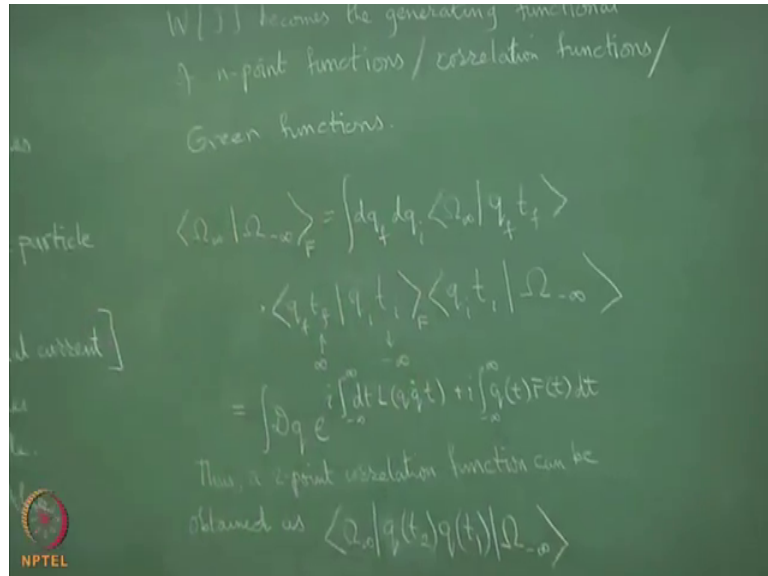 W[J] becomes the generating functional
of n-point functions/correlation functions/
Green functions.
particle
current]
⟨Ω_∞|Ω_{-∞}⟩_F = ∫dq_f dq_i ⟨Ω_∞|q_f t_f⟩
·⟨q_f t_f|q_i t_i⟩_F ⟨q_i t_i|Ω_{-∞}⟩
↑ ↓
∞ -∞
= ∫Dq e^{i∫_{-∞}^{∞} dt L(q q̇ t) + i∫_{-∞}^{∞} q(t)F(t)dt}
Thus, a 2-point correlation function can be
obtained as ⟨Ω_∞|q(t_2)q(t_1)|Ω_{-∞}⟩
NPTEL